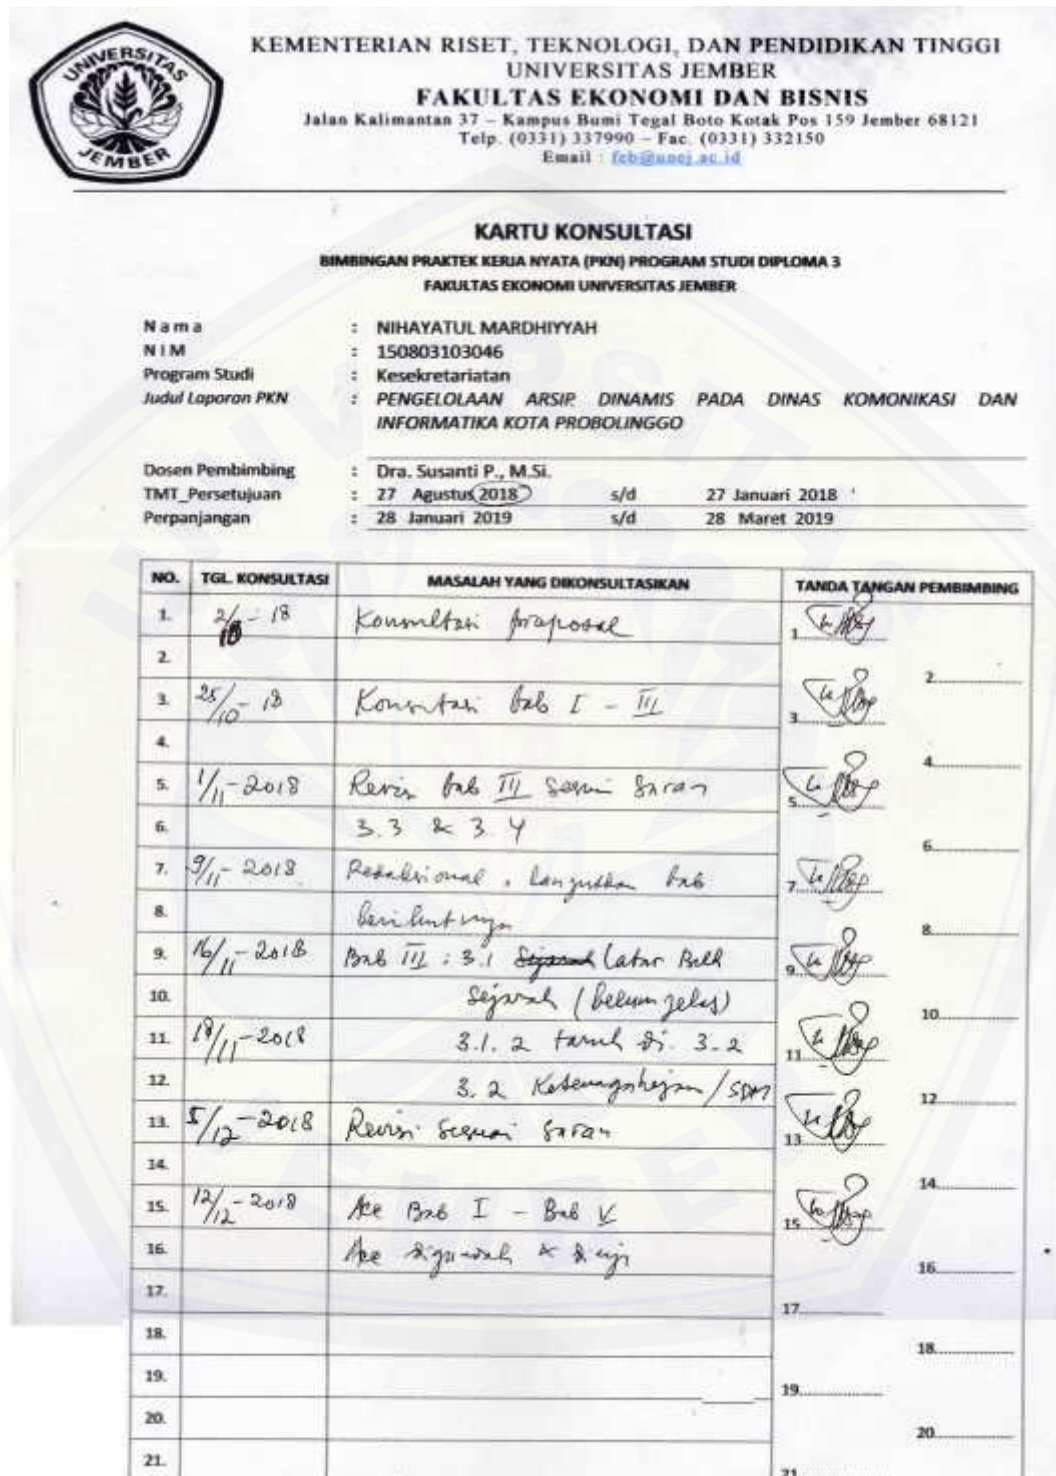 UNIVERSITAS
JEMBER
KEMENTERIAN RISET, TEKNOLOGI, DAN PENDIDIKAN TINGGI
UNIVERSITAS JEMBER
FAKULTAS EKONOMI DAN BISNIS
Jalan Kalimantan 37 – Kampus Bumi Tegal Boto Kotak Pos 159 Jember 68121
Telp. (0331) 337990 – Fac. (0331) 332150
Email : feb@unej.ac.id
KARTU KONSULTASI
BIMBINGAN PRAKTEK KERJA NYATA (PKN) PROGRAM STUDI DIPLOMA 3
FAKULTAS EKONOMI UNIVERSITAS JEMBER
N a m a : NIHAYATUL MARDHIYYAH
N I M : 150803103046
Program Studi : Kesekretariatan
Judul Laporan PKN : PENGELOLAAN ARSIP DINAMIS PADA DINAS KOMONIKASI DAN
INFORMATIKA KOTA PROBOLINGGO
Dosen Pembimbing : Dra. Susanti P., M.Si.
TMT_Persetujuan : 27 Agustus 2018 s/d 27 Januari 2018
Perpanjangan : 28 Januari 2019 s/d 28 Maret 2019
NO. TGL. KONSULTASI MASALAH YANG DIKONSULTASIKAN TANDA TANGAN PEMBIMBING
1. 2/10 - 18 Konsultasi proposal 1.
2. 2.
3. 25/10 - 18 Konsultasi bab I - III 3.
4. 4.
5. 1/11 - 2018 Revisi bab III sesuai saran 5.
6. 3.3 & 3.4 6.
7. 9/11 - 2018 Redaksional, lanjutkan bab 7.
8. berikutnya 8.
9. 16/11 - 2018 Bab III : 3.1 Sejarah Latar Belk 9.
10. Sejarah (belum jelas) 10.
11. 19/11 - 2018 3.1.2 taruh di 3.2 11.
12. 3.2 Ketenagakerjaan / SDM 12.
13. 5/12 - 2018 Revisi sesuai saran 13.
14. 14.
15. 12/12 - 2018 Acc Bab I - Bab V 15.
16. Acc & uji 16.
17. 17.
18. 18.
19. 19.
20. 20.
21. 21.